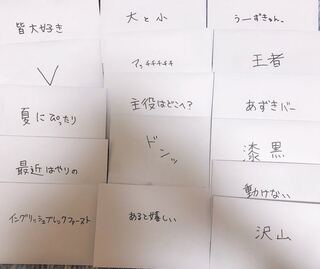 皆大好き
V
夏にぴったり
最近はやりの
イングリッシュブレックファースト
大と小
てっチチチチチ
主役はどこへ?
ドンッ
あると嬉しい
うーずきゅん、
王者
あずきバー
漆黒
動けない
沢山